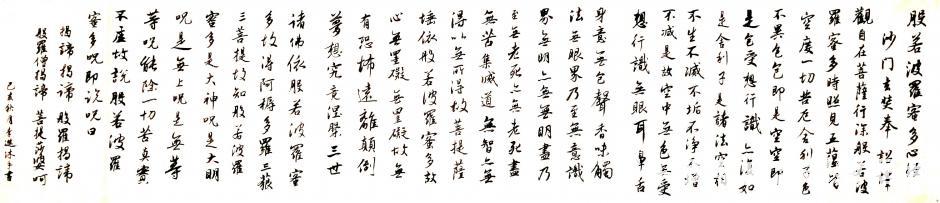 般若波羅蜜多心経
沙门玄奘奉 詔譯
觀自在菩薩行深般若波
羅蜜多時照見五蘊皆
空度一切苦厄舍利子色
不異色色即是空空即
是色受想行識亦復如
是舍利子是諸法空相
不生不滅不垢不淨不增
不減是故空中無色無受
想行識無眼耳鼻舌
身意無色聲香味觸
法無眼界乃至無意識
界無無明亦無無明盡乃
至無老死亦無老死盡
無苦集滅道無智亦無
得以無所得故菩提薩
埵依般若波羅蜜多故
心無罣礙無罣礙故無
有恐怖遠離顛倒
夢想究竟涅槃三世
諸佛依般若波羅蜜
多故得阿耨多羅三藐
三菩提故知般若波羅
蜜多是大神呪是大明
呪是無上呪是無等
等呪能除一切苦真實
不虛故說般若波羅
蜜多呪即說呪曰
揭諦揭諦 般羅揭諦
般羅僧揭諦 菩提莎婆呵
己亥秋月李進